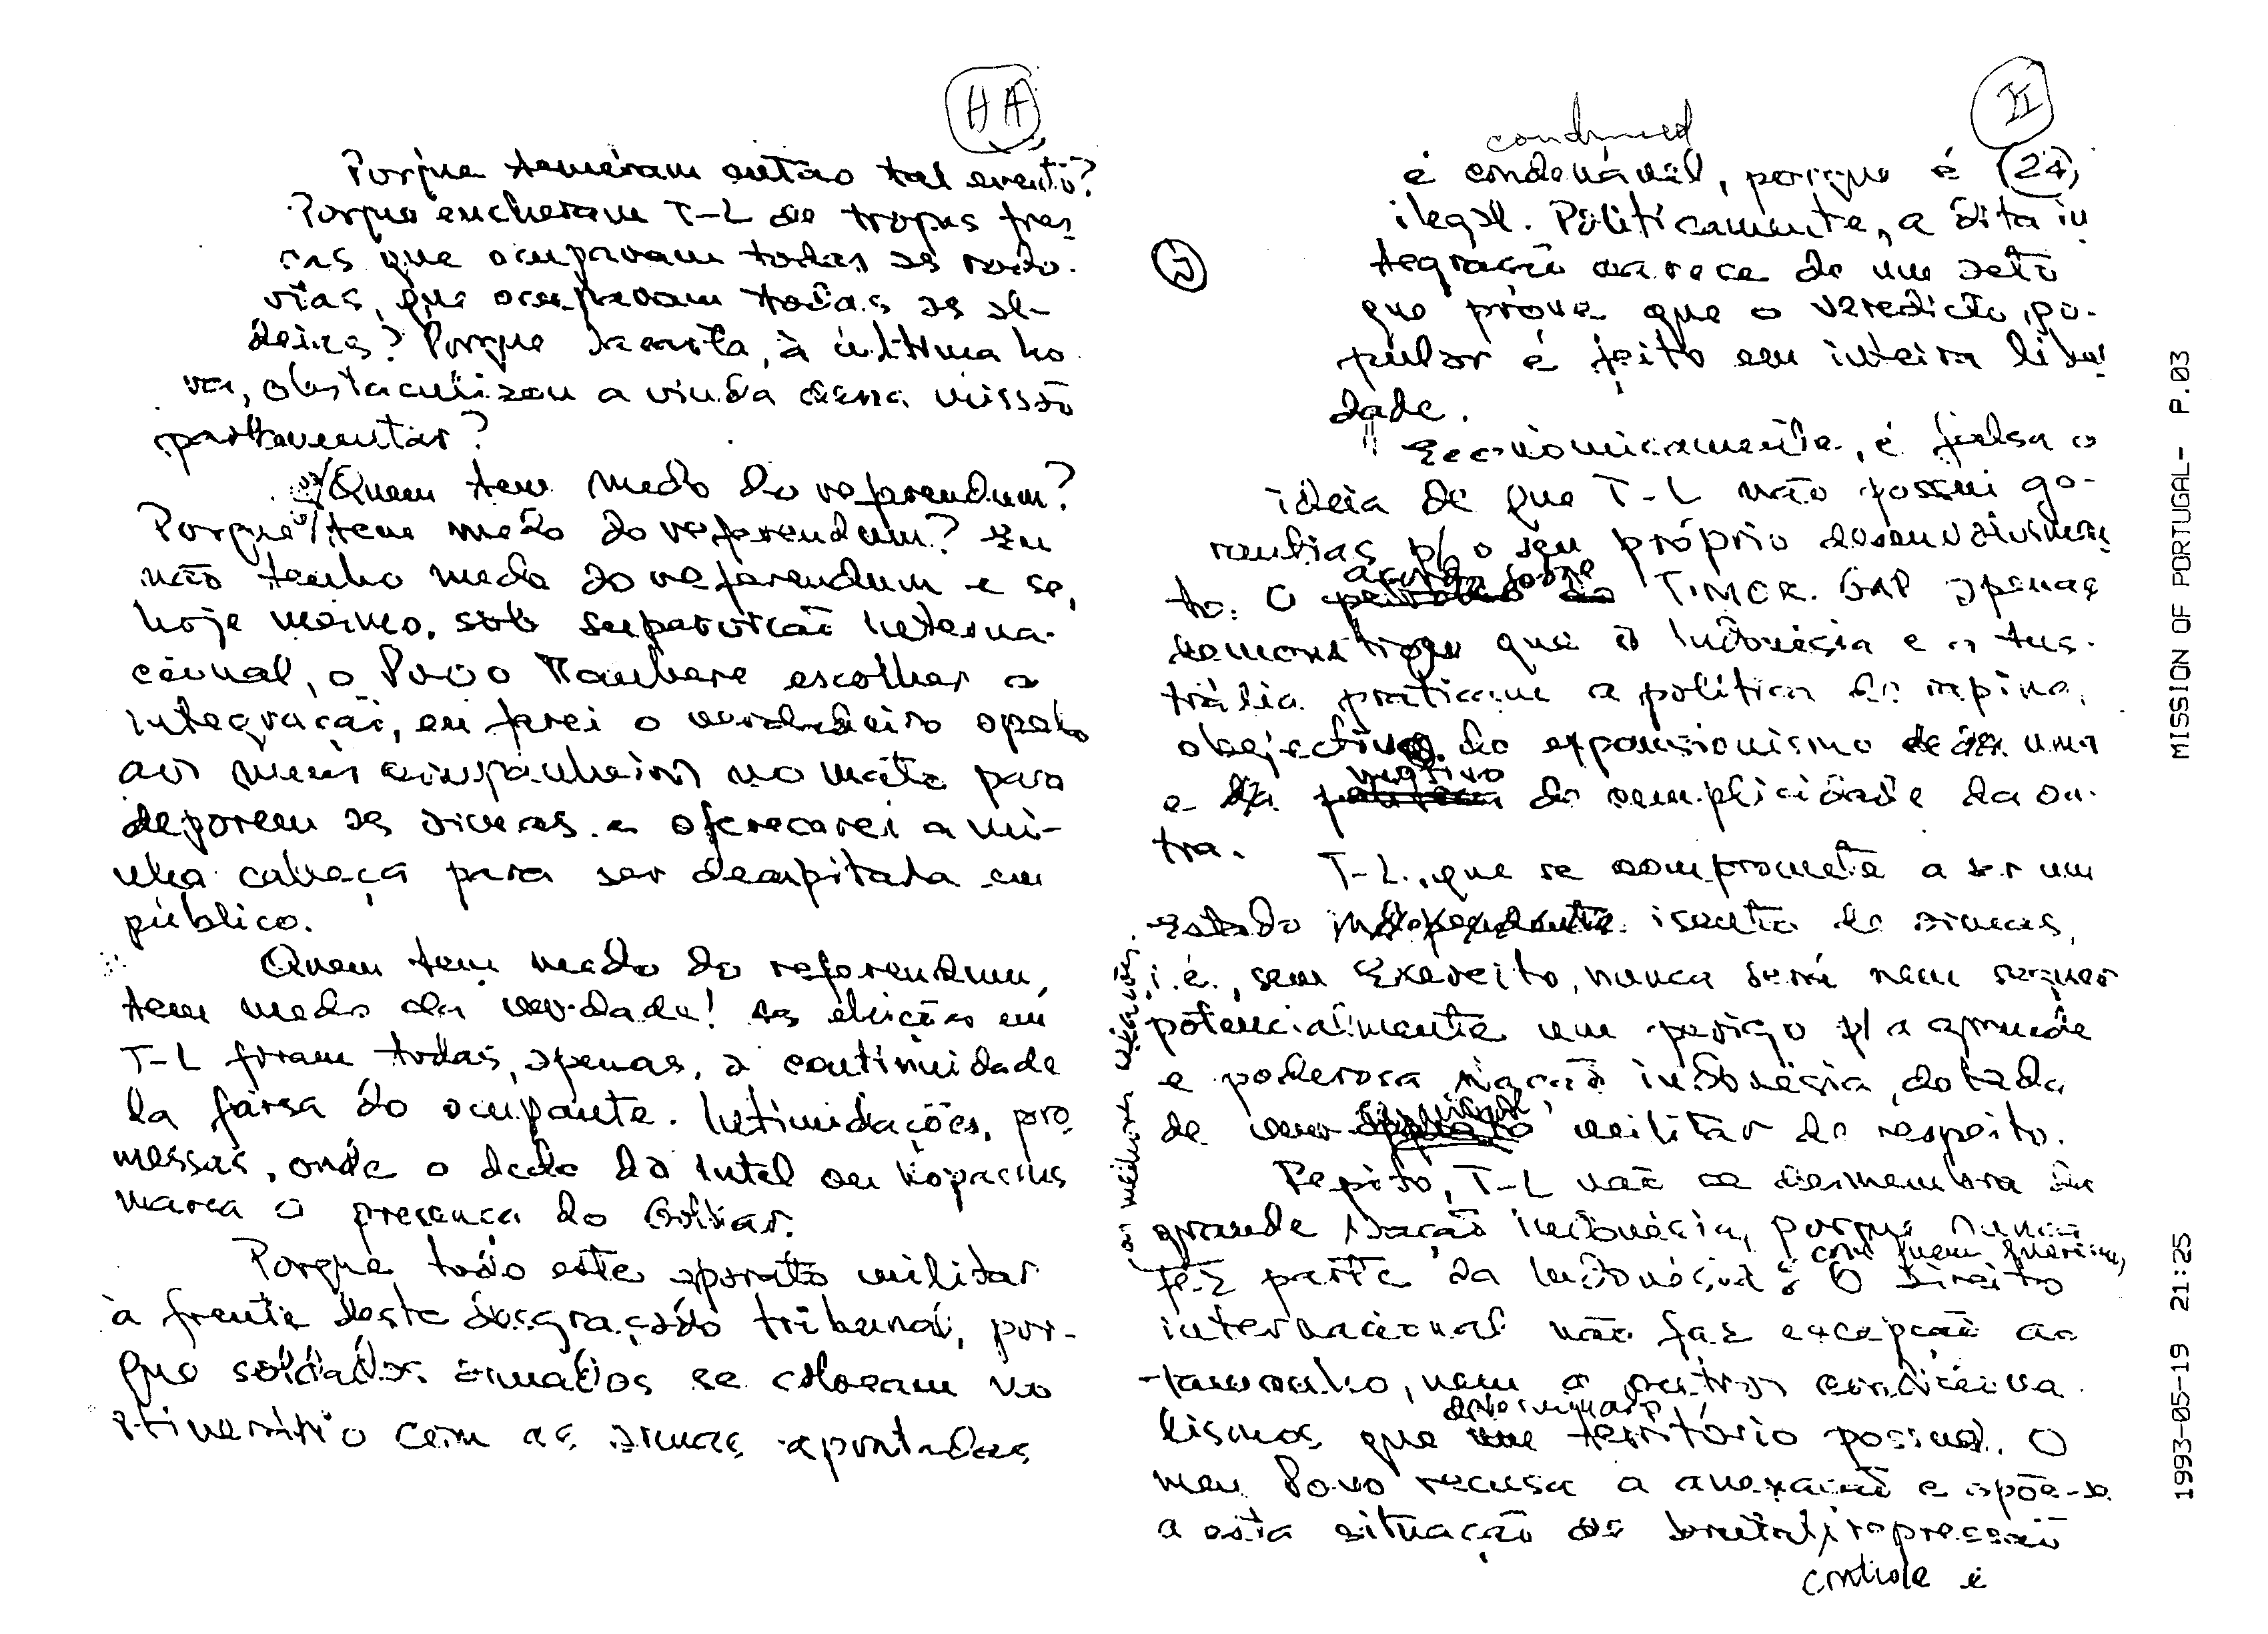 HA
Porque temeram então tal evento?
Porque encheram T-L de tropas fres-
cas que ocupavam todas as rodo-
vias, que ocupavam todas as al-
deias? Porque Jacarta, à última ho-
ra, obstaculizou a vinda dessa missão
parlamentar?
Quem tem medo do referendum?
Porque tem medo do referendum? Eu
não tenho medo do referendum e se,
hoje mesmo, sob supervisão interna-
cional, o Povo Maubere escolher a
integração, eu farei o verdadeiro apelo
aos meus companheiros no mato para
deporem as armas e oferecerei a mi-
nha cabeça para ser decapitada em
público.
Quem tem medo do referendum,
tem medo da verdade! As eleições em
T-L foram, todas, apenas, a continuidade
da farsa do ocupante. Intimidações, pro-
messas, onde o dedo do Intel ou Kopassus
marca a presença do Golkar.
Porque todo este aparato militar
à frente deste desgraçado tribunal, por-
que soldados armados se colocam no
itinerário com as armas apontadas
II
condemned
é condenável, porque é (24)
ilegal. Politicamente, a dita in
tegração carece de um acto
que prove que o veredicto po-
pular é feito em inteira liber
dade.
Economicamente, é falsa a
ideia de que T-L não possui ga-
rantias p/ o seu próprio desenvolvimen
to. O acordo sobre TIMOR GAP apenas
demonstrou que a Indonésia e a Aus-
trália praticam a política de rapina,
objectivo do expansionismo de uma
e motivo de cumplicidade da ou-
tra.
T-L, que se compromete a ser um
Estado independente isento de armas,
i.é., sem Exército, nunca será nem sequer
potencialmente um perigo p/ a grande
e poderosa nação indonésia, dotada
de uma militar de respeito.
Repito, T-L não se desmembra da
grande Nação indonésia, porque nunca
fez parte da Indonésia. O Direito
com quem queríamos,
as melhores relações.
internacional não faz excepção ao
tamanho, nem a outros condiciona-
lismos que determinado território possua. O
meu Povo recusa a anexação e opõe-se
a esta situação de brutal repressão
controle e
MISSION OF PORTUGAL- P.03
1993-05-19 21:25